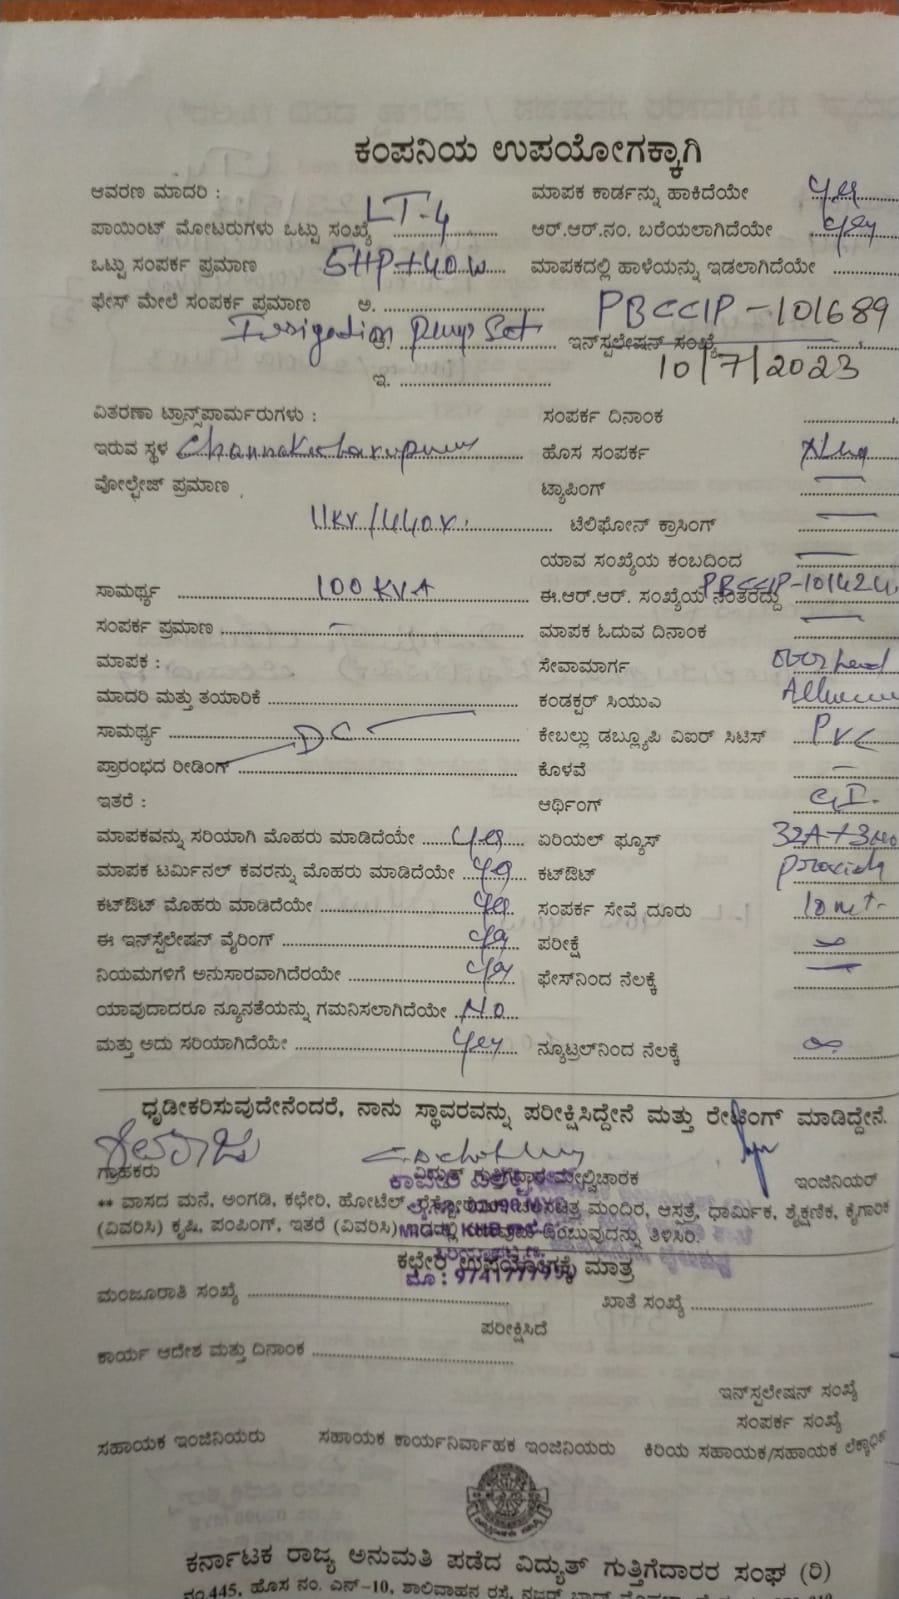 ಕಂಪನಿಯ ಉಪಯೋಗಕ್ಕಾಗಿ
ಆವರಣ ಮಾದರಿ : ಮಾಪಕ ಕಾರ್ಡನ್ನು ಹಾಕಿದೆಯೇ yes
ಪಾಯಿಂಟ್ ಮೋಟರುಗಳು ಒಟ್ಟು ಸಂಖ್ಯೆ LT-4 ಆರ್.ಆರ್.ನಂ. ಬರೆಯಲಾಗಿದೆಯೇ yes
ಒಟ್ಟು ಸಂಪರ್ಕ ಪ್ರಮಾಣ 5HP+40W ಮಾಪಕದಲ್ಲಿ ಹಾಳೆಯನ್ನು ಇಡಲಾಗಿದೆಯೇ
ಫೇಸ್ ಮೇಲೆ ಸಂಪರ್ಕ ಪ್ರಮಾಣ ಅ. PBCCIP-101689
Irrigation pump Set ಇನ್‌ಸ್ಪಲೇಷನ್ ಸಂಖ್ಯೆ
ಇ. 10/7/2023
ವಿತರಣಾ ಟ್ರಾನ್ಸ್‌ಪಾರ್ಮರುಗಳು : ಸಂಪರ್ಕ ದಿನಾಂಕ
ಇರುವ ಸ್ಥಳ ಹೊಸ ಸಂಪರ್ಕ
ವೋಲ್ಟೇಜ್ ಪ್ರಮಾಣ ಟ್ಯಾಪಿಂಗ್ —
11KV/440V. ಟೆಲಿಫೋನ್ ಕ್ರಾಸಿಂಗ್ —
ಯಾವ ಸಂಖ್ಯೆಯ ಕಂಬದಿಂದ —
ಸಾಮರ್ಥ್ಯ 100 KVA ಈ.ಆರ್.ಆರ್. ಸಂಖ್ಯೆಯ ನಂತರದ್ದು PBCCIP-101424
ಸಂಪರ್ಕ ಪ್ರಮಾಣ — ಮಾಪಕ ಓದುವ ದಿನಾಂಕ —
ಮಾಪಕ : ಸೇವಾಮಾರ್ಗ overhead
ಮಾದರಿ ಮತ್ತು ತಯಾರಿಕೆ ಕಂಡಕ್ಟರ್ ಸಿಯುಎ
ಸಾಮರ್ಥ್ಯ DC ಕೇಬಲ್ಲು ಡಬ್ಲ್ಯೂಪಿ ವಿಐರ್ ಸಿಟಿಸ್ PVC
ಪ್ರಾರಂಭದ ರೀಡಿಂಗ್ ಕೊಳವೆ —
ಇತರೆ : ಆರ್ಥಿಂಗ್ G.I.
ಮಾಪಕವನ್ನು ಸರಿಯಾಗಿ ಮೊಹರು ಮಾಡಿದೆಯೇ yes ಏರಿಯಲ್ ಫ್ಯೂಸ್ 32A+3No
ಮಾಪಕ ಟರ್ಮಿನಲ್ ಕವರನ್ನು ಮೊಹರು ಮಾಡಿದೆಯೇ yes ಕಟ್‌ಔಟ್
ಕಟ್‌ಔಟ್ ಮೊಹರು ಮಾಡಿದೆಯೇ yes ಸಂಪರ್ಕ ಸೇವೆ ದೂರು 10 mtr
ಈ ಇನ್‌ಸ್ಪೆಲೇಷನ್ ವೈರಿಂಗ್ yes ಪರೀಕ್ಷೆ
ನಿಯಮಗಳಿಗೆ ಅನುಸಾರವಾಗಿದೆರಯೇ yes ಫೇಸ್‌ನಿಂದ ನೆಲಕ್ಕೆ —
ಯಾವುದಾದರೂ ನ್ಯೂನತೆಯನ್ನು ಗಮನಿಸಲಾಗಿದೆಯೇ No
ಮತ್ತು ಅದು ಸರಿಯಾಗಿದೆಯೇ yes ನ್ಯೂಟ್ರಲ್‌ನಿಂದ ನೆಲಕ್ಕೆ
ಧೃಡೀಕರಿಸುವುದೇನೆಂದರೆ, ನಾನು ಸ್ಥಾವರವನ್ನು ಪರೀಕ್ಷಿಸಿದ್ದೇನೆ ಮತ್ತು ರೇಟಿಂಗ್ ಮಾಡಿದ್ದೇನೆ.
ಗ್ರಾಹಕರು ವಿದ್ಯುತ್ ಗುತ್ತಿಗೆದಾರ ಮೇಲ್ವಿಚಾರಕ ಇಂಜಿನಿಯರ್
** ವಾಸದ ಮನೆ, ಅಂಗಡಿ, ಕಛೇರಿ, ಹೋಟೆಲ್ ಚಲನಚಿತ್ರ ಮಂದಿರ, ಆಸ್ಪತ್ರೆ, ಧಾರ್ಮಿಕ, ಶೈಕ್ಷಣಿಕ, ಕೈಗಾರಿಕ
(ವಿವರಿಸಿ) ಕೃಷಿ, ಪಂಪಿಂಗ್, ಇತರೆ (ವಿವರಿಸಿ) ಎಂಬುವುದನ್ನು ತಿಳಿಸಿರಿ.
ಕಛೇರಿ ಉಪಯೋಗಕ್ಕೆ ಮಾತ್ರ
ಮಂಜೂರಾತಿ ಸಂಖ್ಯೆ ಖಾತೆ ಸಂಖ್ಯೆ
ಪರೀಕ್ಷಿಸಿದೆ
ಕಾರ್ಯ ಆದೇಶ ಮತ್ತು ದಿನಾಂಕ
ಇನ್‌ಸ್ಪಲೇಷನ್ ಸಂಖ್ಯೆ
ಸಂಪರ್ಕ ಸಂಖ್ಯೆ
ಸಹಾಯಕ ಇಂಜಿನಿಯರು ಸಹಾಯಕ ಕಾರ್ಯನಿರ್ವಾಹಕ ಇಂಜಿನಿಯರು ಕಿರಿಯ ಸಹಾಯಕ/ಸಹಾಯಕ ಲೆಕ್ಕಾಧಿಕ
ಕರ್ನಾಟಕ ರಾಜ್ಯ ಅನುಮತಿ ಪಡೆದ ವಿದ್ಯುತ್ ಗುತ್ತಿಗೆದಾರರ ಸಂಘ (ರಿ)
ನಂ.445, ಹೊಸ ನಂ. ಎನ್-10, ಶಾಲಿವಾಹನ ರಸ್ತೆ,